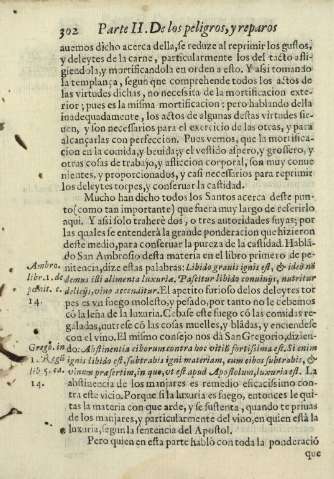 302 Parte II. De los peligros, y reparos
auemos dicho acerca della, se reduze al reprimir los gustos,
y deleytes de la carne, particularmente los del tacto afli-
giendola, y mortificandola en orden a esto. Y assi tomando
la templança, segun que comprehende todos los actos de
las virtudes dichas, no necessita de la mortificacion exte-
rior; pues es la misma mortificacion: pero hablando della
inadequadamente, los actos de algunas destas virtudes sir-
uen, y son necessarios para el exercicio de las otras, y para
alcançarlas con perfeccion. Pues vemos, que la mortifica-
cion en la comida, y beuida; y el vestido aspero, y grossero, y
otras cosas de trabajo, y afliccion corporal, son muy conue
nientes, y proporcionados, y casi necessarios para reprimir
los deleytes torpes, y conseruar la castidad.
Mucho han dicho todos los Santos acerca deste pun-
to; como tan importante) que fuera muy largo de referirlo
aqui. Y assi solo traherè dos, o tres autoridades suyas; por
las quales se entenderà la grande ponderacion que hizieron
deste medio, para conseruar la pureza de la castidad. Hablã-
do San Ambrosio desta materia en el libro primero de pe-
Ambro. nitencia, dize estas palabras: Libido grauis ignis est, & ideò nõ
libr. 1. de demus illi alimenta luxuriæ, Pascitur libido conuiuijs, nutritur
pœnit. c. delicijs, vino accenditur. El apetito furioso de los deleytes tor
14. pes es vn fuego molesto, y pesado, por tanto no le cebemos
cõ la leña de la luxuria. Cebase este fuego cõ las comidas re-
galadas, nutrese cõ las cosas muelles, y blãdas, y enciendese
con el vino. El mismo consejo nos dà San Gregorio, dizien-
Gregō. in do: Abstinentia ciborum contra hoc vitiũ fortissima est. Si enim
1. Reg. ignis libido est, subtrahis igni materiam, cum cibos subtrahis, &
lib. 5. ca. vinum præsertim, in quo, vt est apud Apostolum, luxuria est. La
14. abstinencia de los manjares es remedio eficacissimo con
tra este vicio. Porque si la luxuria es fuego, entonces le qui-
tas la materia con que arde, y se sustenta, quando te priuas
de los manjares, y particularmente del vino, en quien està la
luxuria, segun la sentencia del Apostol.
Pero quien en esta parte hablò con toda la ponderaciõ
que